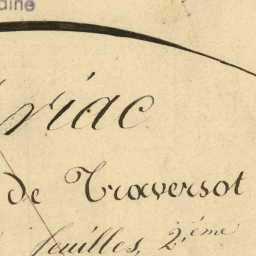 riac
de Traversot
feuilles, 2.ème